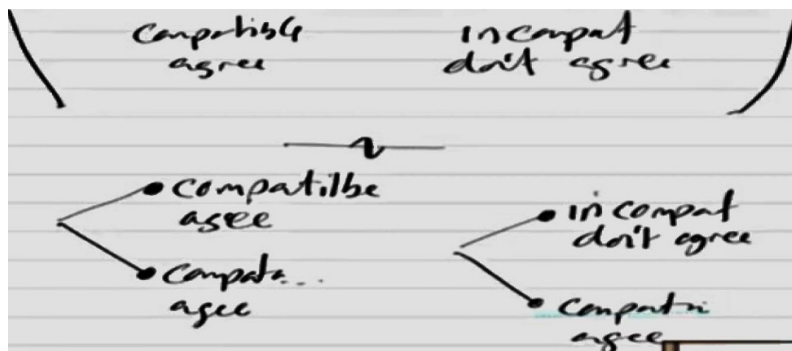 Compatible
agree
incompat
don't agree
compatilbe
agee
Compat...
agee
incompat
don't agree
agee